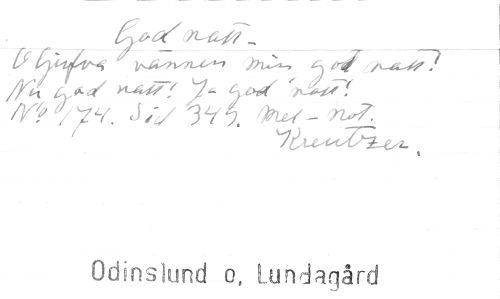 God natt -
O ljufva vännen min god natt!
Nu god natt! Ja god natt!
No 174. Sid 349. Mel-not.
Kreutzer.
Odinslund o, Lundagård